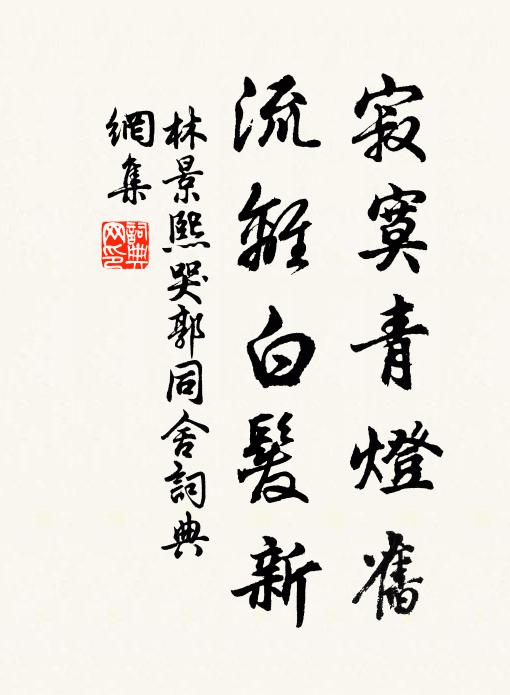 寂寞青燈舊
流離白髮新
林景熙哭郭同舍詞典
網集
詞典
网印